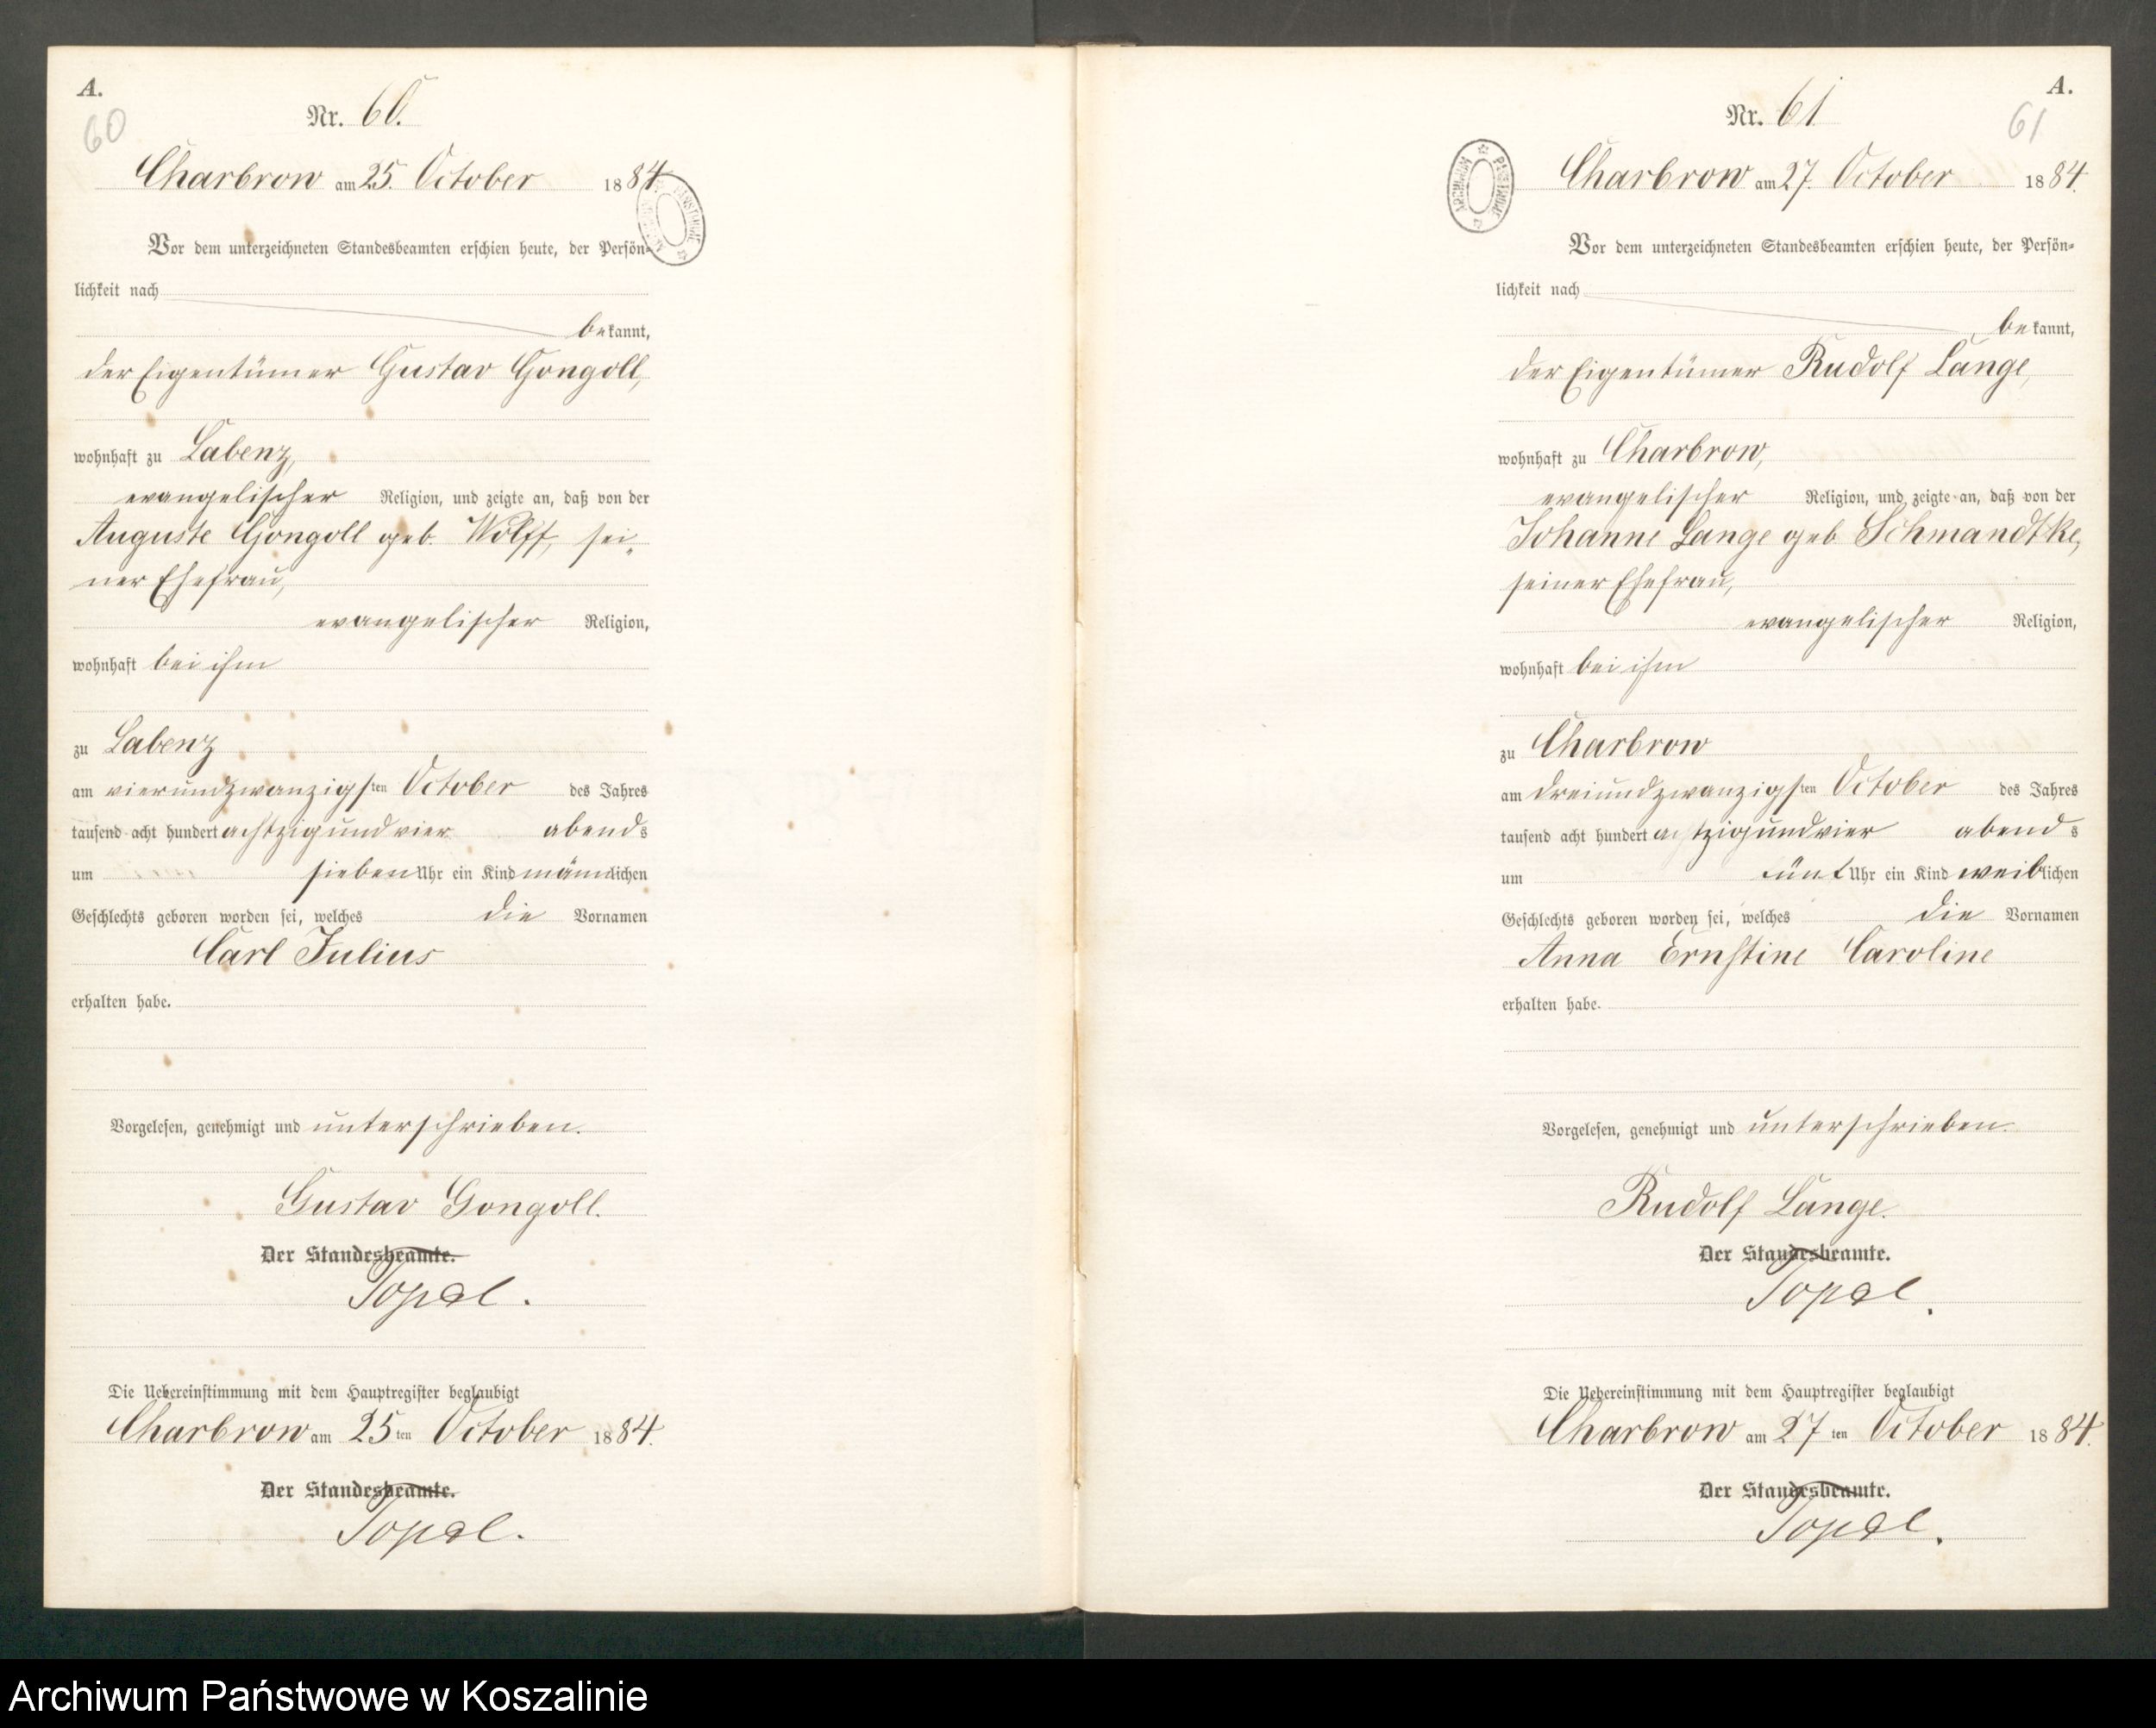 A.
60
Nr. 60.
Charbrow am 25. October 1884.
Vor dem unterzeichneten Standesbeamten erschien heute, der Persön-
lichkeit nach
bekannt,
der Eigentümer Gustav Gongoll,
wohnhaft zu Labenz,
evangelischer Religion, und zeigte an, daß von der
Auguste Gongoll geb. Wolff, sei-
ner Ehefrau,
evangelischer Religion,
wohnhaft bei ihm
zu Labenz
am vierundzwanzigsten October des Jahres
tausend acht hundert achtzigundvier abends
um sieben Uhr ein Kind männlichen
Geschlechts geboren worden sei, welches die Vornamen
Carl Julius
erhalten habe.
Vorgelesen, genehmigt und unterschrieben.
Gustav Gongoll.
Der Standesbeamte.
Topel.
Die Uebereinstimmung mit dem Hauptregister beglaubigt
Charbrow am 25ten October 1884.
Der Standesbeamte.
Topel.
A.
61
Nr. 61
ARCHIWUM PAŃSTWOWE
Charbrow am 27. October 1884.
Vor dem unterzeichneten Standesbeamten erschien heute, der Persön-
lichkeit nach
bekannt,
der Eigentümer Rudolf Lange,
wohnhaft zu Charbrow,
evangelischer Religion, und zeigte an, daß von der
Johanne Lange geb Schmandtke,
seiner Ehefrau,
evangelischer Religion,
wohnhaft bei ihm
zu Charbrow
am dreiundzwanzigsten October des Jahres
tausend acht hundert achtzigundvier abends
um fünf Uhr ein Kind weiblichen
Geschlechts geboren worden sei, welches die Vornamen
Anna Ernstine Caroline
erhalten habe.
Vorgelesen, genehmigt und unterschrieben.
Rudolf Lange.
Der Standesbeamte.
Topel.
Die Uebereinstimmung mit dem Hauptregister beglaubigt
Charbrow am 27ten October 1884.
Der Standesbeamte.
Topel.
Archiwum Państwowe w Koszalinie